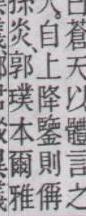 蒼天以體言之
自上降鑒則偁
孫炎、郭璞本爾雅